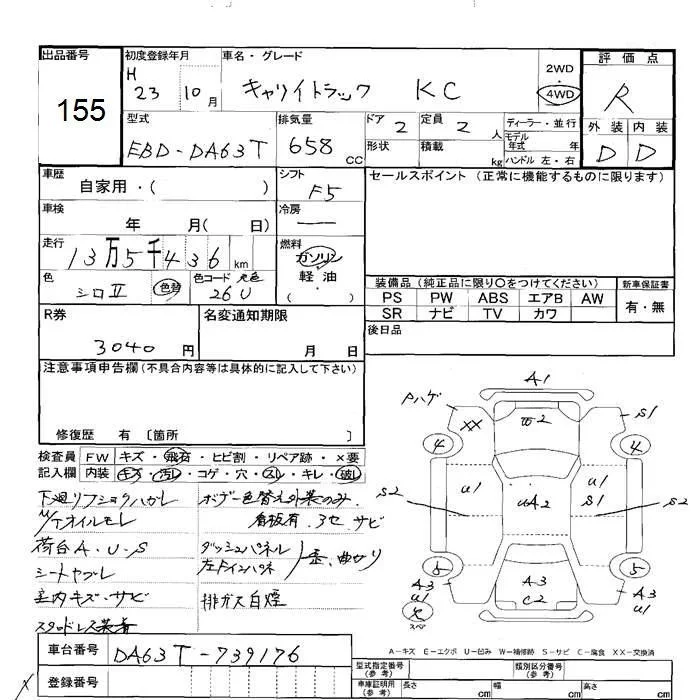 出品番号
155
初度登録年月
H 23 10月
車名・グレード
キャリイトラック KC
2WD
・
4WD
評価点
R
外装 内装
D D
型式
EBD-DA63T
排気量
658 CC
ドア 2
形状
定員 2 人
積載 kg
ディーラー・並行
モデル年式 年
ハンドル 左・右
車歴
自家用・( )
シフト
F5
セールスポイント (正常に機能するものに限ります)
車検
年 月( 日)
冷房
走行
13万5千436 km
燃料
ガソリン
軽・油
・
( )
色
シロⅡ
色替
色コード 元色
26U
装備品 (純正品に限り〇をつけてください)
新車保証書
PS PW ABS エアB AW
SR ナビ TV カワ
有・無
後日品
R券
3040 円
名変通知期限
月 日
注意事項申告欄 (不具合内容等は具体的に記入して下さい)
修復歴 有 〔箇所 〕
検査員
記入欄
FW キズ・飛石・ヒビ割・リペア跡・×要
内装 キズ・汚レ・コゲ・穴・スレ・キレ・破レ
下廻リフショクハガレ
M/Tオイルモレ
荷台A.U.S
シートヤブレ
室内キズ・サビ
スタッドレス装着
ボデー色替え外装のみ
看板有.3セ サビ
ダッシュパネル
左ドインパネ
歪、曲がり
排ガス白煙
A1
Pハゲ
XX
W2
S1
4
4
U1
U1
S1
S2
S2
UA2
5
5
A3
U1
A3
C2
A3
U1
スペ
A-キズ E-エクボ U-凹み W-補修跡 S-サビ C-腐食 XX-交換済
車台番号
DA63T-739176
登録番号
型式指定番号
(参考)
類別区分番号
(参考)
車庫証明用
(参考)
長さ cm
幅 cm
高さ cm